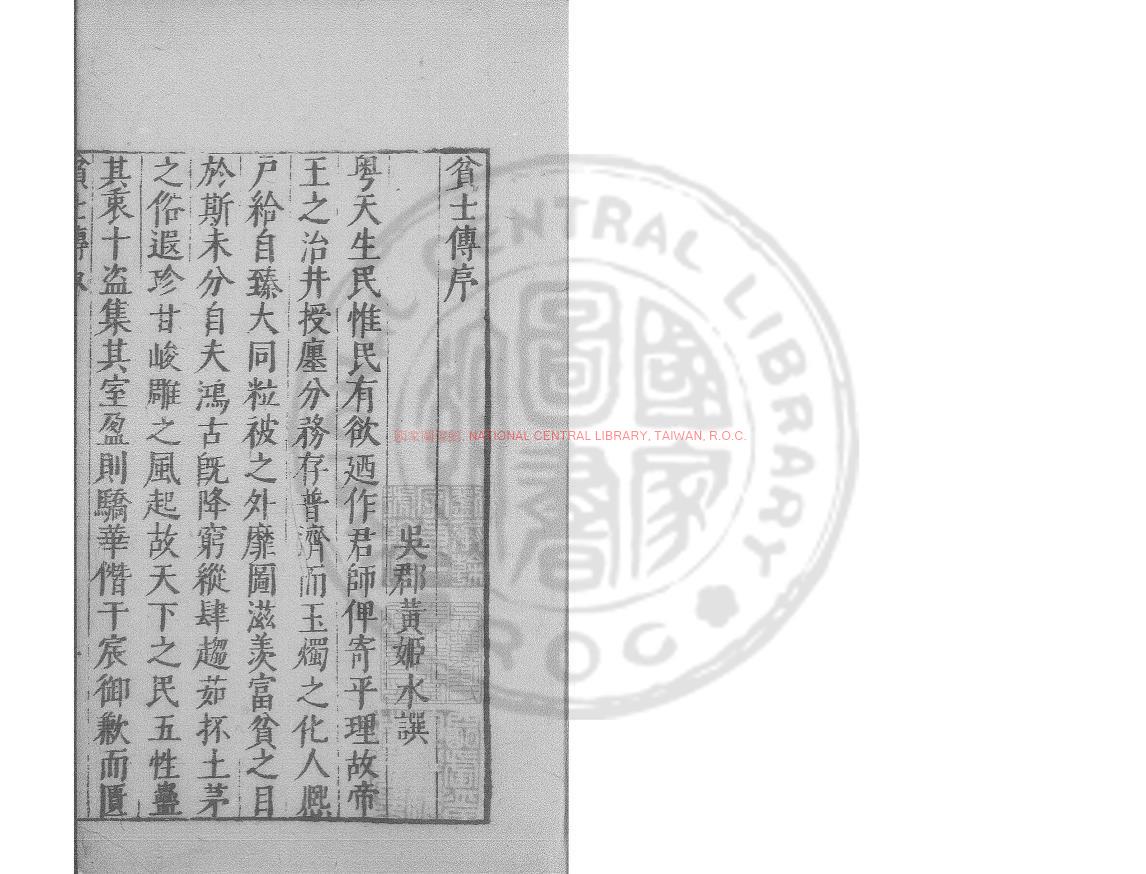 貧士傳序
吳郡黃姬水譔
粤天生民惟民有欲廼作君師俾寄平理故帝
王之治井授廛分務存普濟而玉燭之化人熈
戸給自臻大同粒被之外靡圖滋羡富貧之目
於斯未分自夫鴻古旣降窮縱肆趨茹抔土茅
之俗遐珍甘峻雕之風起故天下之民五性蠱
其衷十盗集其室盈則驕華僭干宸御歉而匱
貧士傳
國家圖書館
NATIONAL CENTRAL LIBRARY
R.O.C.
國家圖書館, NATIONAL CENTRAL LIBRARY, TAIWAN, R.O.C.